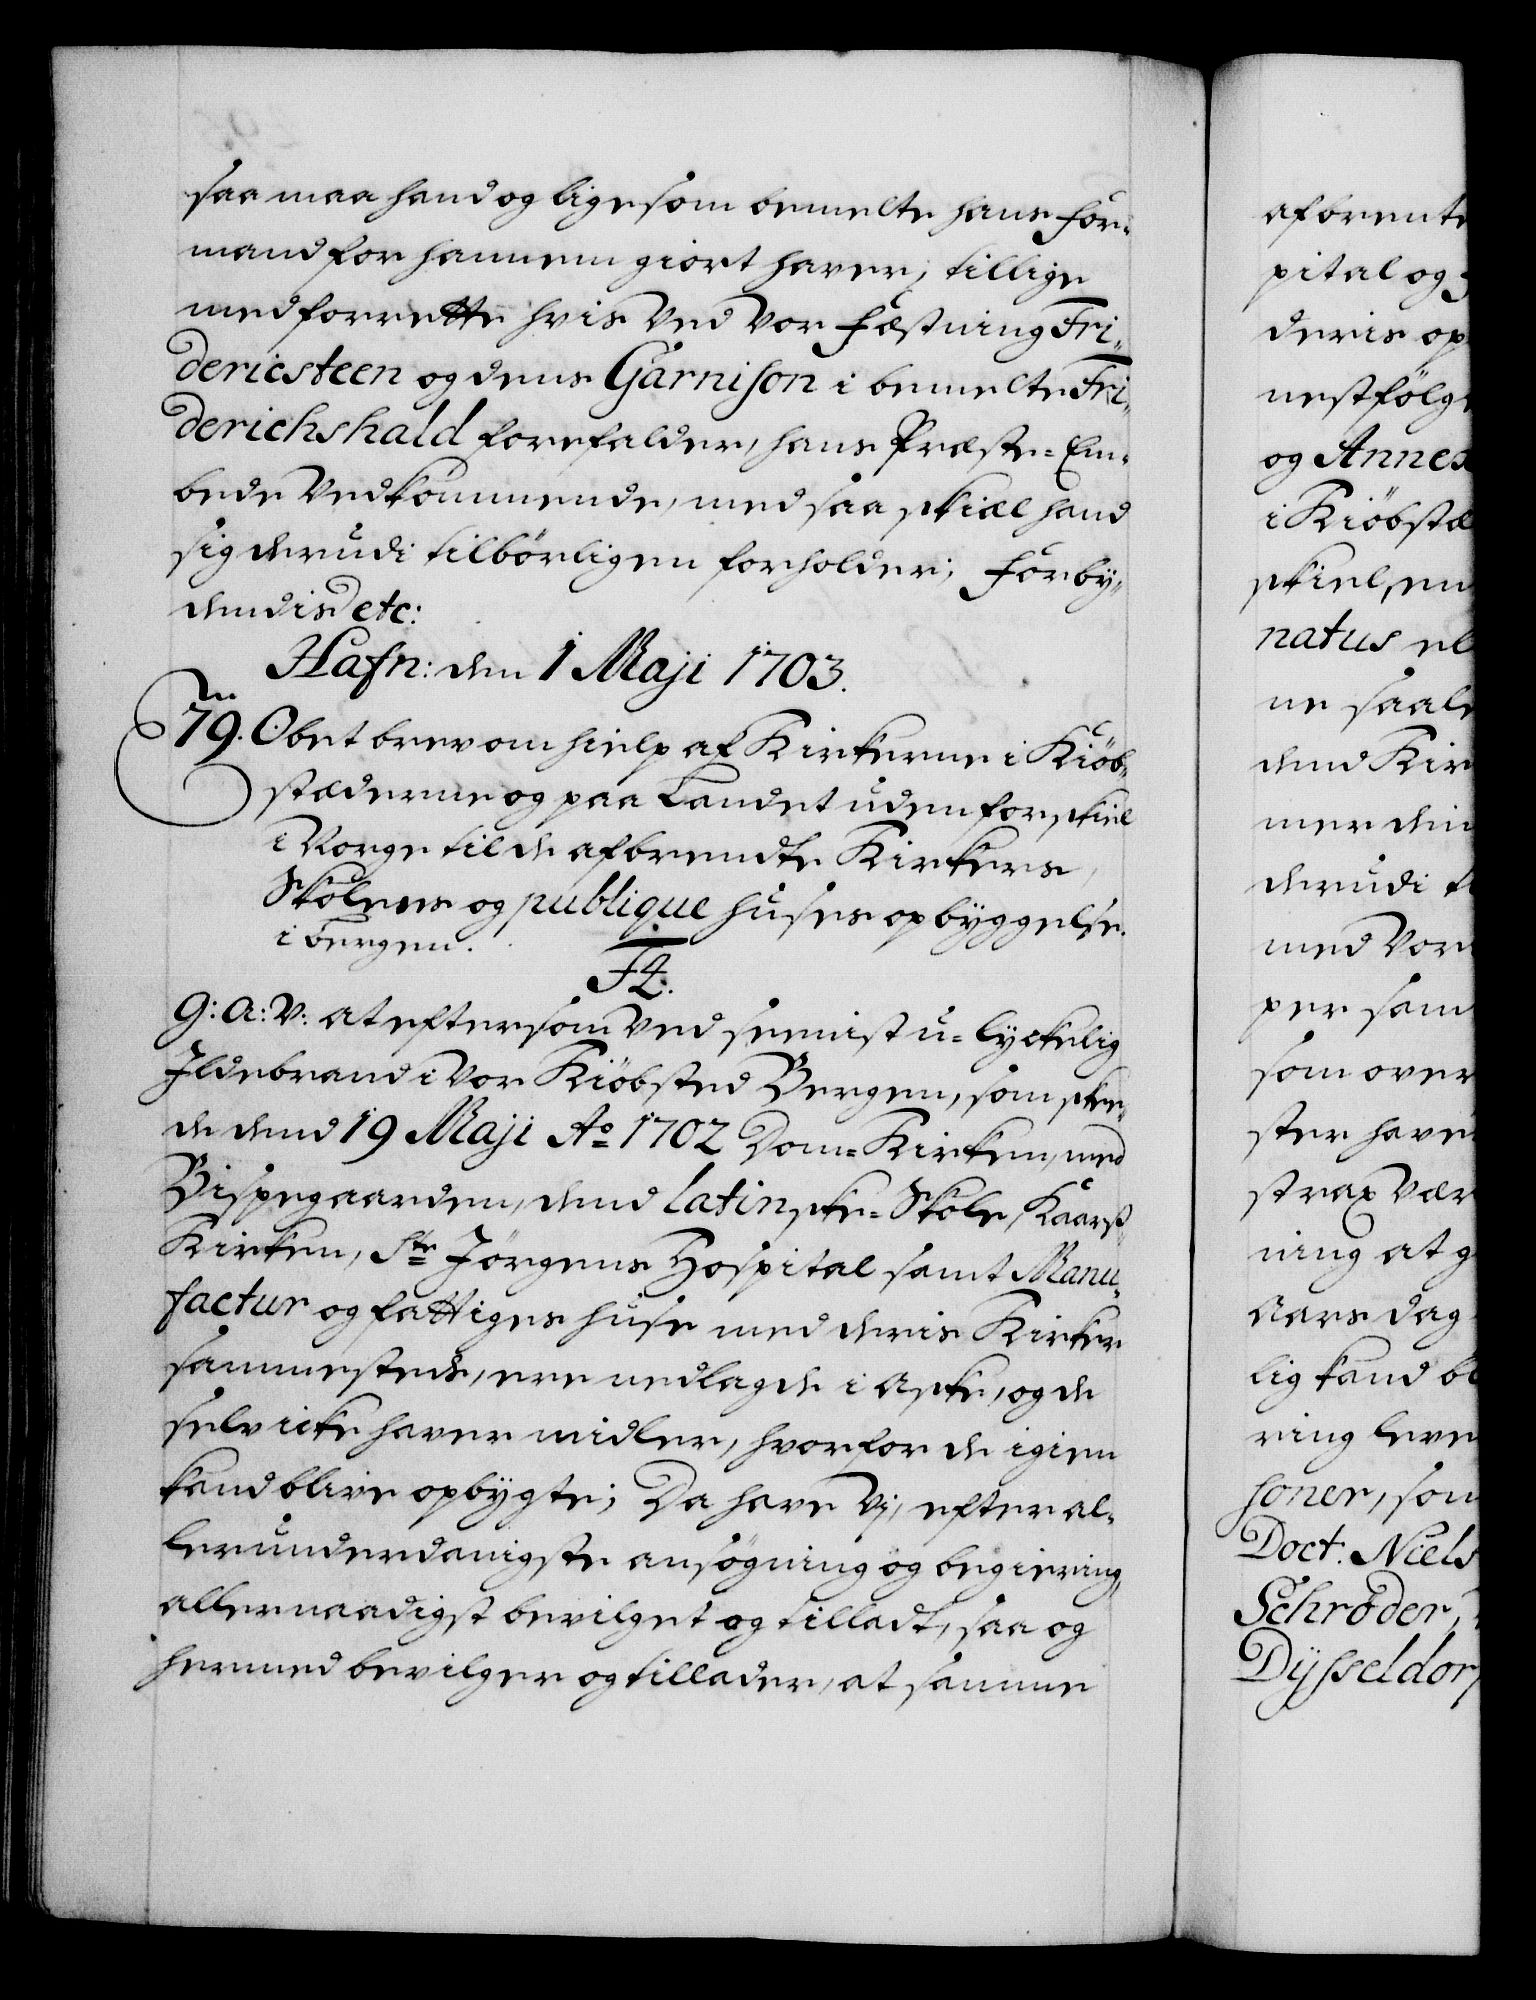 saa maa hand og ligesom bemelte hans For-
mand for hannem giort haver, tillige
med forrette hvis Ved Vor Fæstning Fri-
dericsteen og dens Garnison i bemelte Fri-
derichshald forefalder, hans Præste-Em-
bede Vedkommende, med saa skiæl hand
sig derudi tilbörligen forholder; Forby-
dendis etc:
Hafn: den 1 Maji 1703.
79. Obet brev om hielp af Kirkerne i Kiöb-
stæderne og paa Landet uden forskiel
i Norge til de afbrendte Kirkers,
Skolens og publique huses opbyggelse.
i Bergen.
F4.
G: A: V: at eftersom Ved seenist u-lyckelig
Ildebrand i Vor Kiöbsted Bergen, som skee-
de dend 19 Maji Ao 1702 Dom-Kirken, med
Bispegaarden, dend latinske-Skole, Kaarß
Kirken, Ste Jörgens Hospital samt Manu-
factur og fattiges huse med deris Kirker
sammesteds, ere nedlagde i Aske, og de
selv icke haver midler, hvorfor de igien
kand blive opbygte; Da have Vj, efter al-
lerunderdanigste ansögning og begiering,
allernaadigst bevilget og tilladt, saa og
hermed bevilger og tillader, at samme
afbrente
pital og
deris op
nestfölge
og Annex
i Kiöbstæ
skiel, en
natus el
ne saale
dend Kir
mer den
derudi
med Vor
per sam
som over
ster have
strax Vær
ning at g
Aars dag
lig kand bl
ring leve
soner, som
Doct. Niels
Schröder,
Dÿsseldor